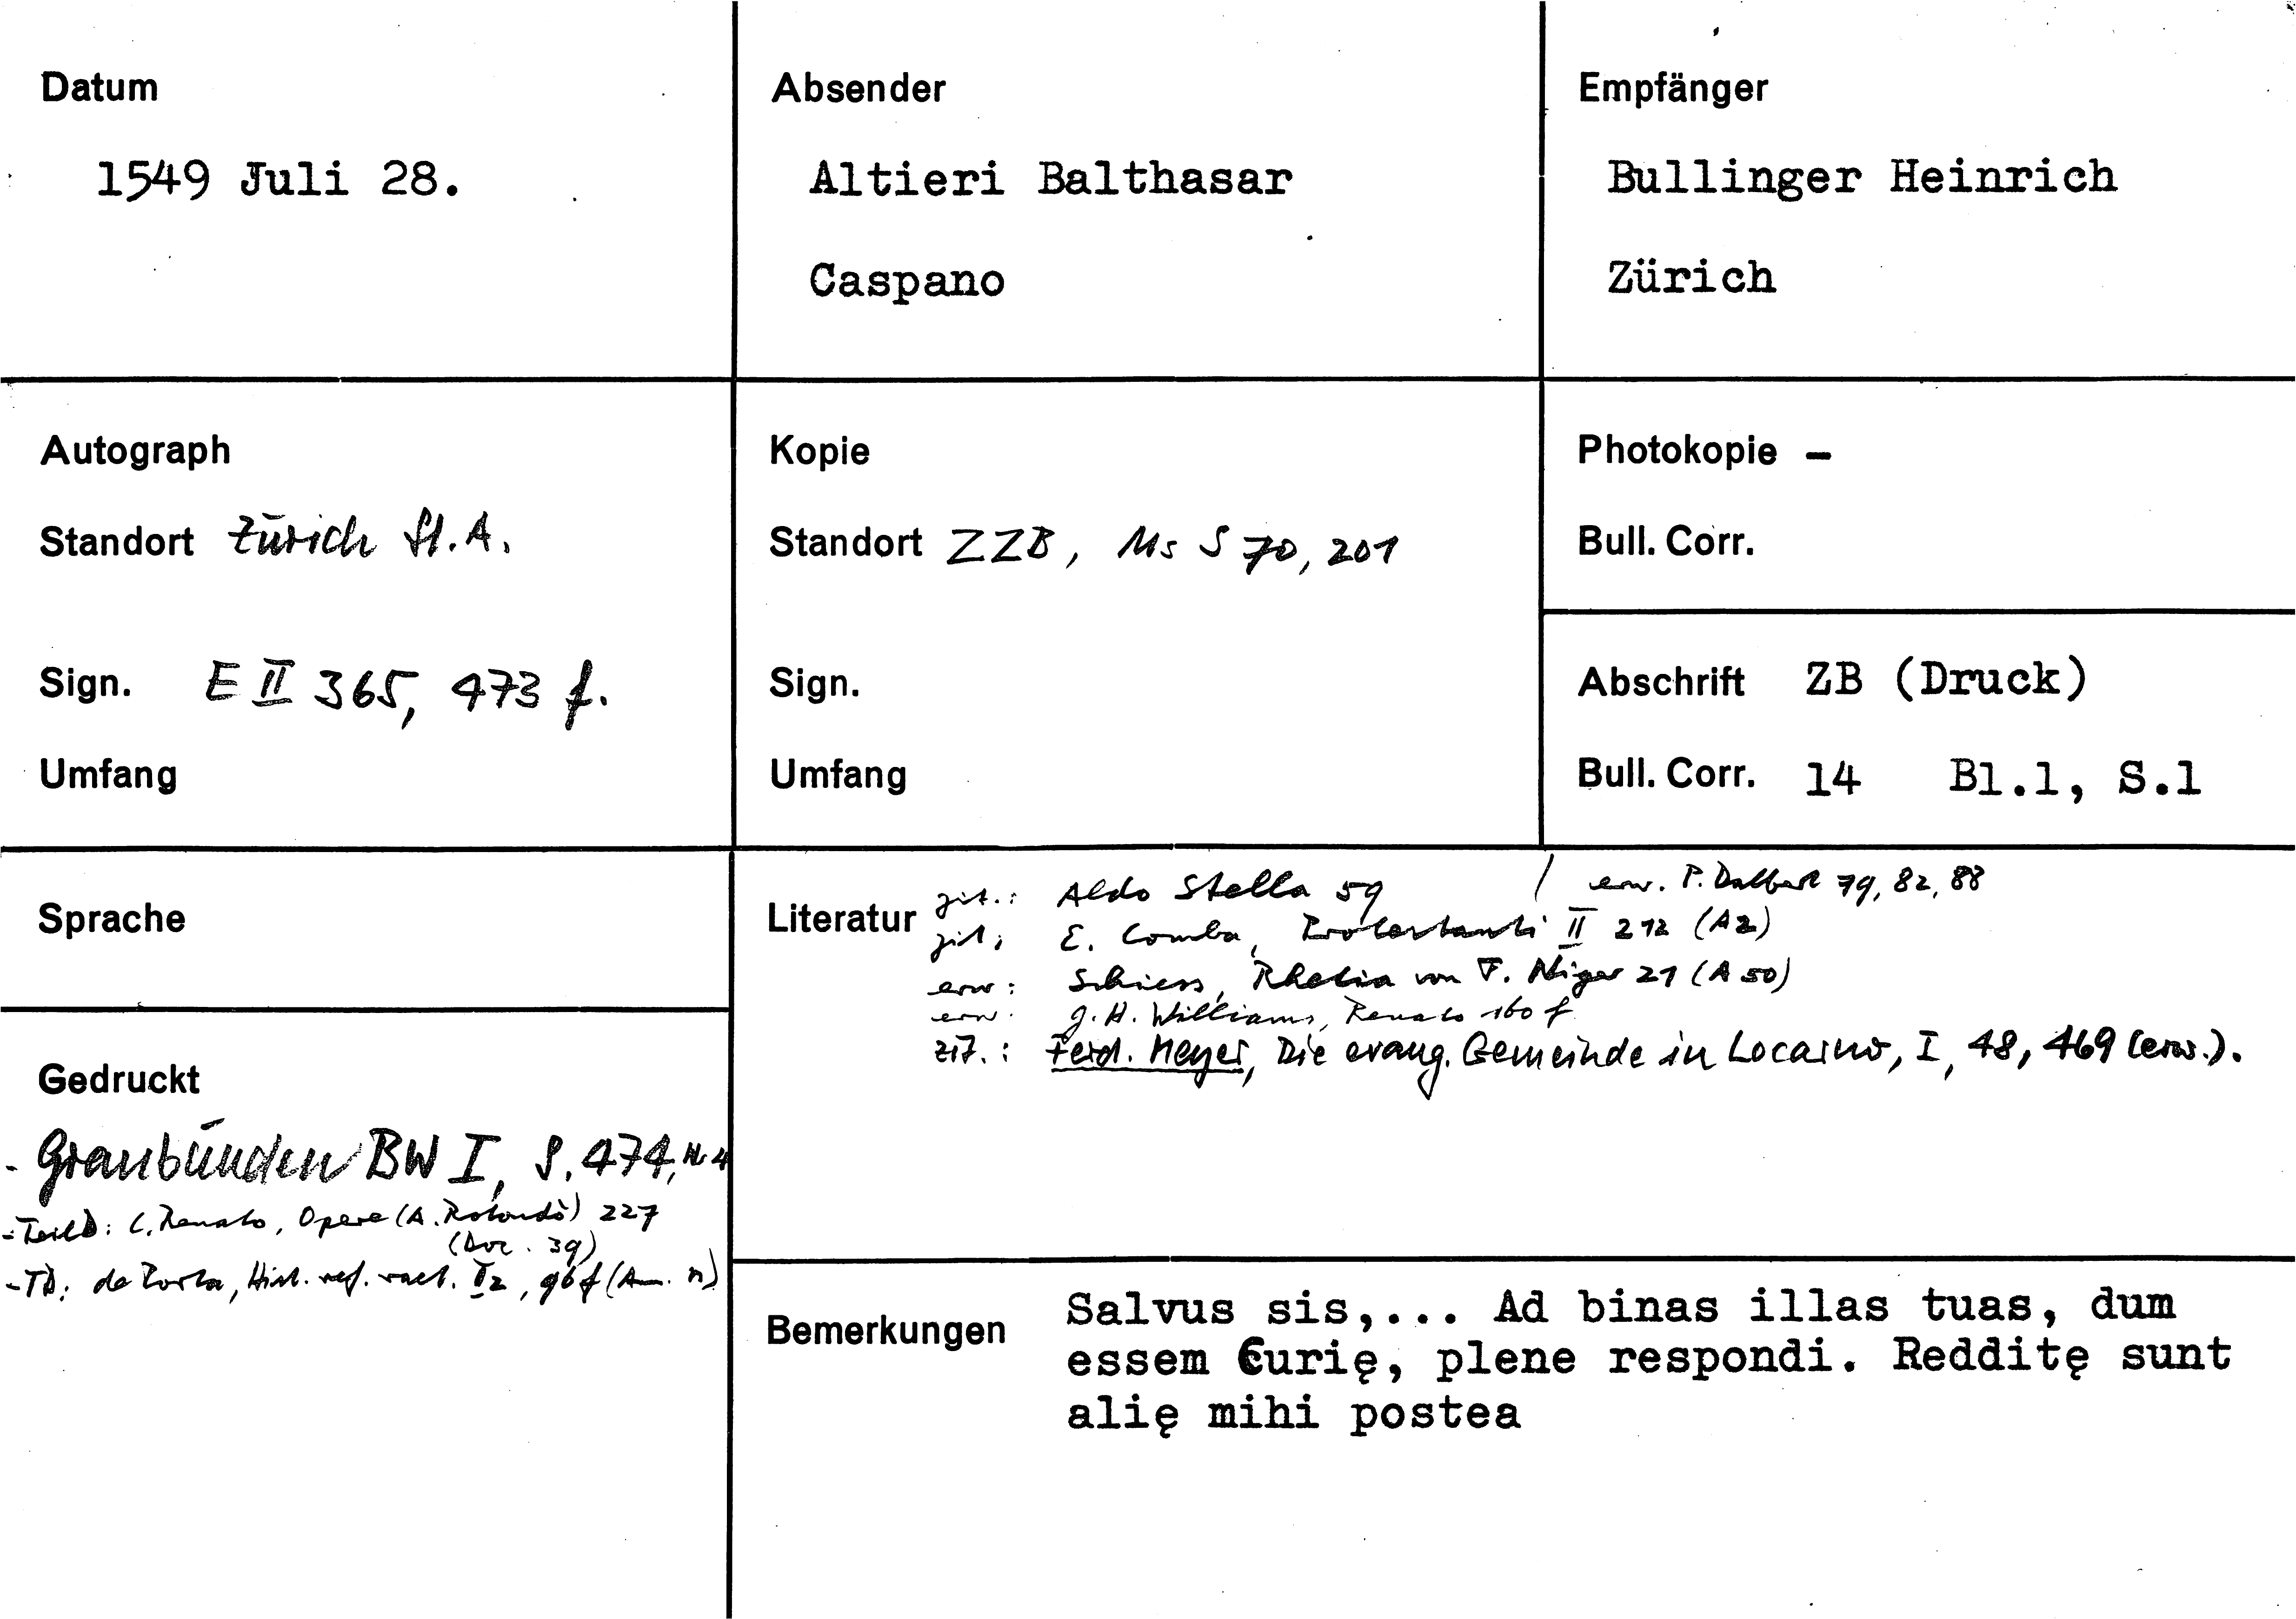 Datum
1549 Juli 28.
Absender
Altieri Balthasar
Caspano
Empfänger
Bullinger Heinrich
Zürich
Autograph
Standort Zürich St.A.
Sign. E II 365, 473 f.
Umfang
Kopie
Standort ZZB, Ms S 70, 201
Sign.
Umfang
Photokopie –
Bull. Corr.
Abschrift ZB (Druck)
Bull. Corr. 14 Bl.1, S.1
Sprache
Gedruckt
- Graubünden BW I, S. 474, Nr 4
- Teild: C. Renato, Opere (A. Rotondò) 227
(Doc. 39)
- TD: de Porta, Hist. ref. raet. I2, 96 f (Am. n)
Literatur
zit.: Aldo Stella 59 / erw. P. Dalbert 79, 82, 88
zit: E. Comba, Protestanti II 212 (A2)
erw: Schiess, Rhetia von F. Niger 21 (A 50)
erw. G. H. Williams, Renato 160 f
zit.: Ferd. Meyer, Die evang. Gemeinde in Locarno, I, 48, 469 (erw.).
Bemerkungen
Salvus sis,... Ad binas illas tuas, dum
essem Curię, plene respondi. Redditę sunt
alię mihi postea